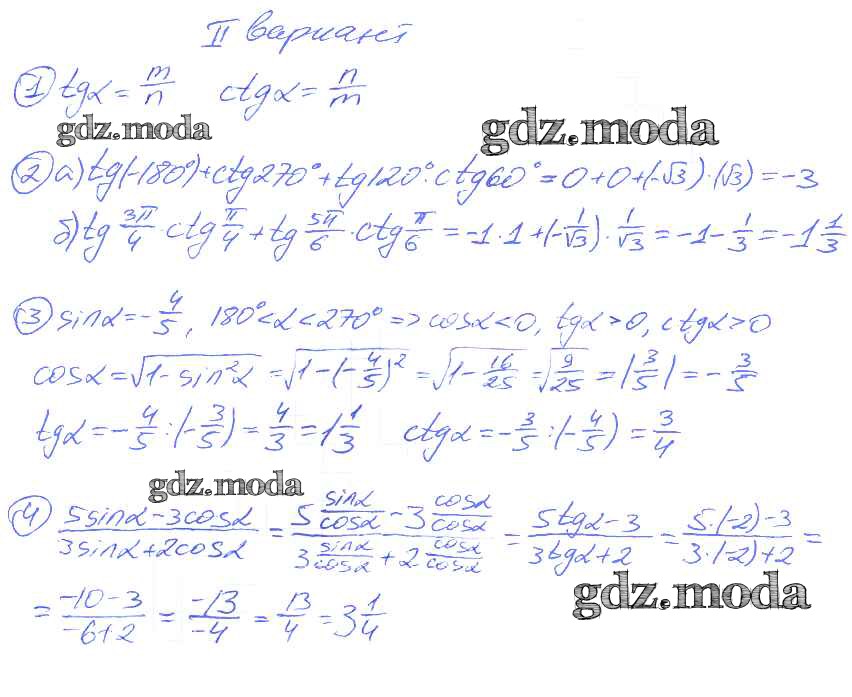 II вариант
① tgα = m/n ctgα = n/m
gdz.moda gdz.moda
② а) tg(-180°) + ctg270° + tg120° · ctg60° = 0 + 0 + (-√3) · (√3) = -3
б) tg 3π/4 · ctg π/4 + tg 5π/6 · ctg π/6 = -1 · 1 + (-1/√3) · 1/√3 = -1 - 1/3 = -1 1/3
③ sinα = -4/5, 180° < α < 270° => cosα < 0, tgα > 0, ctgα > 0
cosα = √(1 - sin²α) = √(1 - (-4/5)²) = √(1 - 16/25) = √(9/25) = |3/5| = -3/5
tgα = -4/5 : (-3/5) = 4/3 = 1 1/3 ctgα = -3/5 : (-4/5) = 3/4
gdz.moda
④ (5sinα - 3cosα)/(3sinα + 2cosα) = (5 sinα/cosα - 3 cosα/cosα)/(3 sinα/cosα + 2 cosα/cosα) = (5tgα - 3)/(3tgα + 2) = (5·(-2) - 3)/(3·(-2) + 2) =
gdz.moda
= (-10 - 3)/(-6 + 2) = -13/-4 = 13/4 = 3 1/4